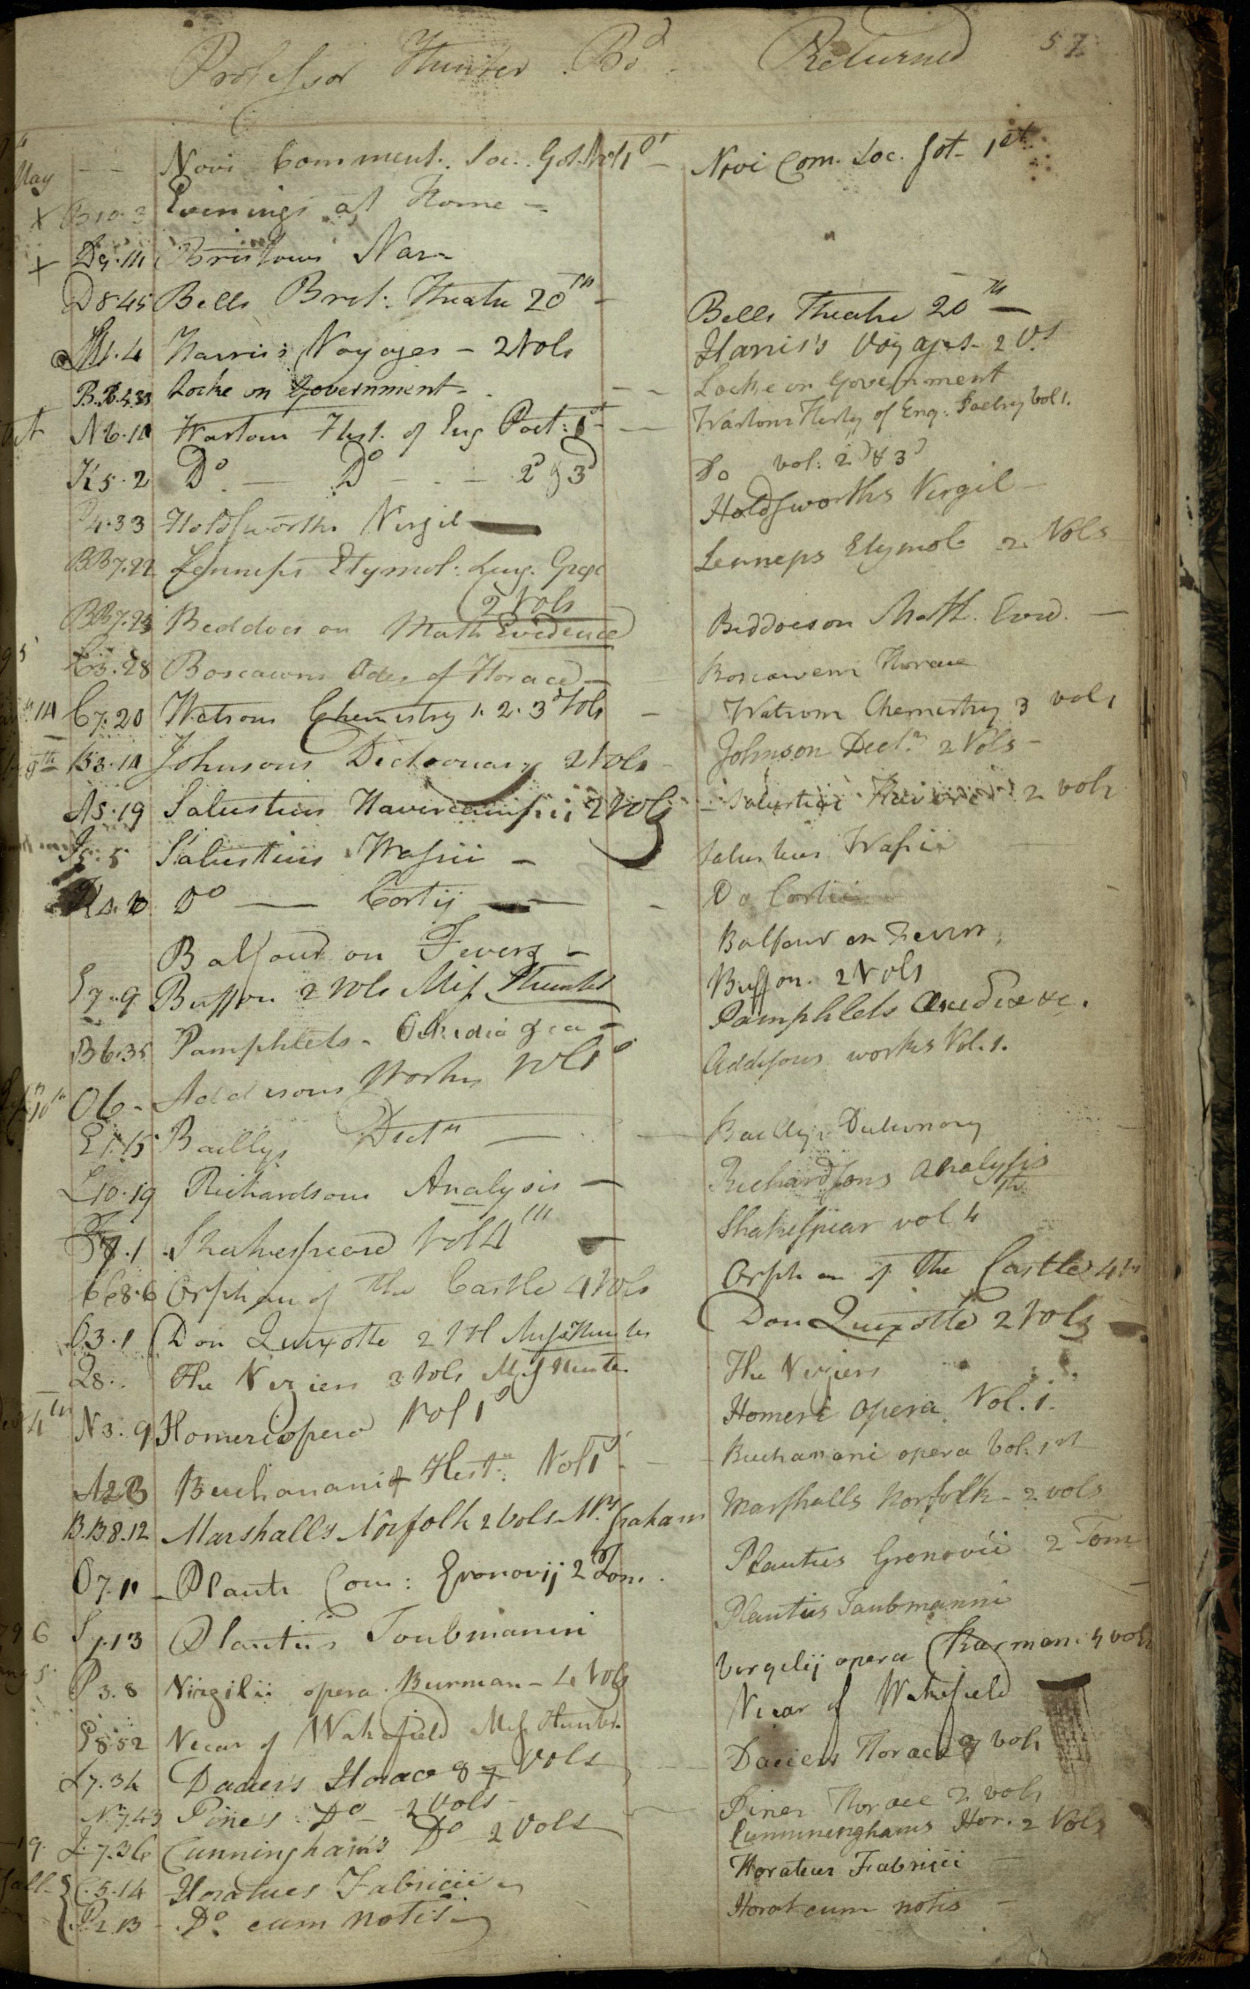 Professor Hunter Bd. Returned 57
May Novi Comment. Soc. Got. Vol 1st Novi Com. Soc. Got. 1st
X B10.3 Evenings at Home
X D9.14 Bristows Nar
D8.45 Bells Brit. Theatre 20th Bells Theatre 20th
1.4 Harris's Voyages - 2 Vols Harris's Voyages 2 Vs
B.B.4.33 Locke on Government Locke on Government
N6.14 Wartons Hist. of Eng Poet: 1st Wartons Histy of Eng. Poetry Vol 1.
K5.2 Do Do 2d & 3d Do vol: 2d & 3d
4.33 Holdsworths Virgil Holdsworths Virgil
BB7.22 Lenneps Etymol: Ling. Graec Lenneps Etymol 2 Vols
2 Vols
BB7.23 Beddoes on Math Evidence Beddoes on Math. Evid.
C3.28 Boscawens Odes of Horace Boscawens Horace
14 C7.20 Watsons Chemistry 1. 2. 3d Vols Watsons Chemistry 3 vols
9th B3.14 Johnsons Dictionary 2 Vols Johnson Dictn 2 Vols
A5.19 Salustius Havercampii 2 Vols Salustius 2 vols
5.5 Salustius Wassii Salustius Wassii
K4. Do Cortij Do Cortii
Balfour on Fevers Balfour on Fevers
E7.9 Buffon 2 Vols Miss Hunter Buffon. 2 Vols
B6.35 Pamphlets - Orchidia &ca Pamphlets &c.
10th O6 Addisons Works Vol 1st Addisons works Vol. 1.
E1.15 Baillys Dictn Baillys Dictionary
L10.19 Richardsons Analysis Richardsons Analysis
F7.1 Shakespeare Vol 4th Shakespear vol 4th
CC8.6 Orphan of the Castle 4 Vols Orphan of the Castle 4 vs
O3.1 Don Quixotte 2 Vol Miss Hunter Don Quixotte 2 Vols
Q8. The Viziers 3 Vols Miss Hunter The Viziers
4th N3.9 Homeri opera Vol 1st Homeri opera Vol. 1.
A2.B Buchanani Hist: Vol 1st Buchanani opera Vol. 1st
B.B8.12 Marshalls Norfolk 2 Vols Mrs Graham Marshalls Norfolk - 2 vols
O7.11 Plauti Com: Gronovij 2 Tom. Plautus Gronovii 2 Tom
6 13 Plautus Taubmanni Plautus Taubmanni
5 P3.8 Virgilii opera Burman - 4 Vols Virgilij opera Burman. 4 vols
E8.52 Vicar of Wakefield Miss Hunter Vicar of Wakefield
L7.34 Daciers Horace 8 & 9 Vols Daciers Horace 9 vols
N7.43 Pine's Do 2 Vols Pines Horace 2 vols
19. L7.36 Cunningham's Do 2 Vols Cunninghams Hor. 2 Vols
C.5.14 Horatius Fabricii Horatius Fabricii
P2.13 Do. cum notis Horat cum notis